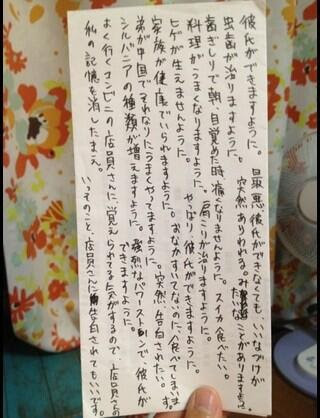 彼氏ができますように。　最悪彼氏ができなくても、いいなづけが
虫歯が治りますように。　突然あらわれる。みたいなことがありますように。
歯ぎしりで朝、目覚めた時痛くなりませんように。スイカ食べたい。
料理がうまくなりますように。　肩こりが治りますように。
ヒゲが生えませんように。　やっぱり、彼氏ができますように。
家族が健康でいられますように。おなかすいてないのに、食べてしまいます。
弟が中国でそれなりにうまくやってますように。突然、告白されたい。
シルバニアの種類が増えますように。強烈なパワーストーンで彼氏が
できますように。
よく行くコンビニの店員さんに覚えられてる気がするので、店員さんの
私の記憶を消したまえ。　いっそのこと、店員さんに告白されてもいいです。